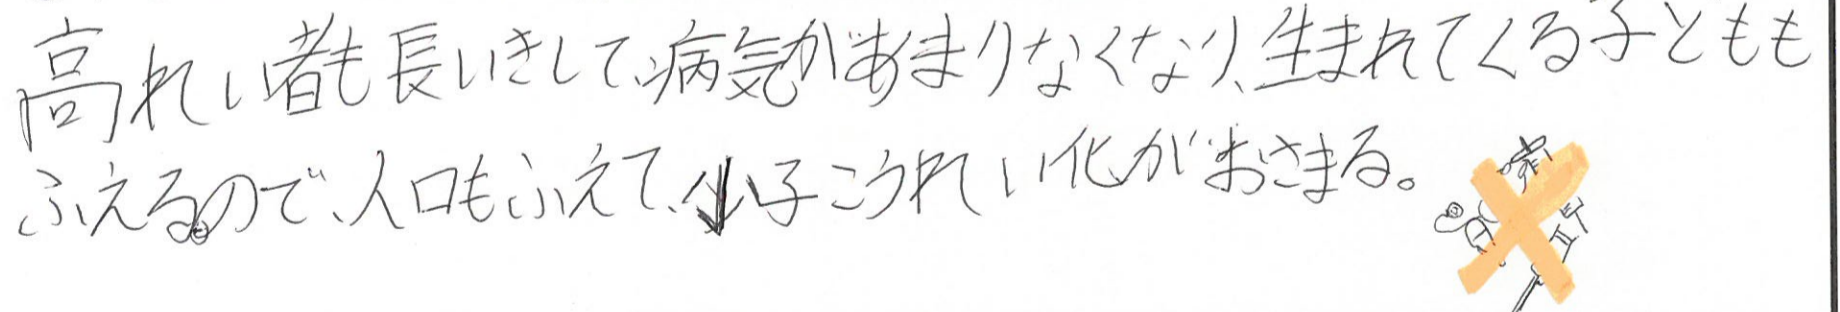 高れい者も長いきして、病気があまりなくなり、生まれてくる子ともも
ふえるので、人口もふえて、小子こうれい化がおさまる。